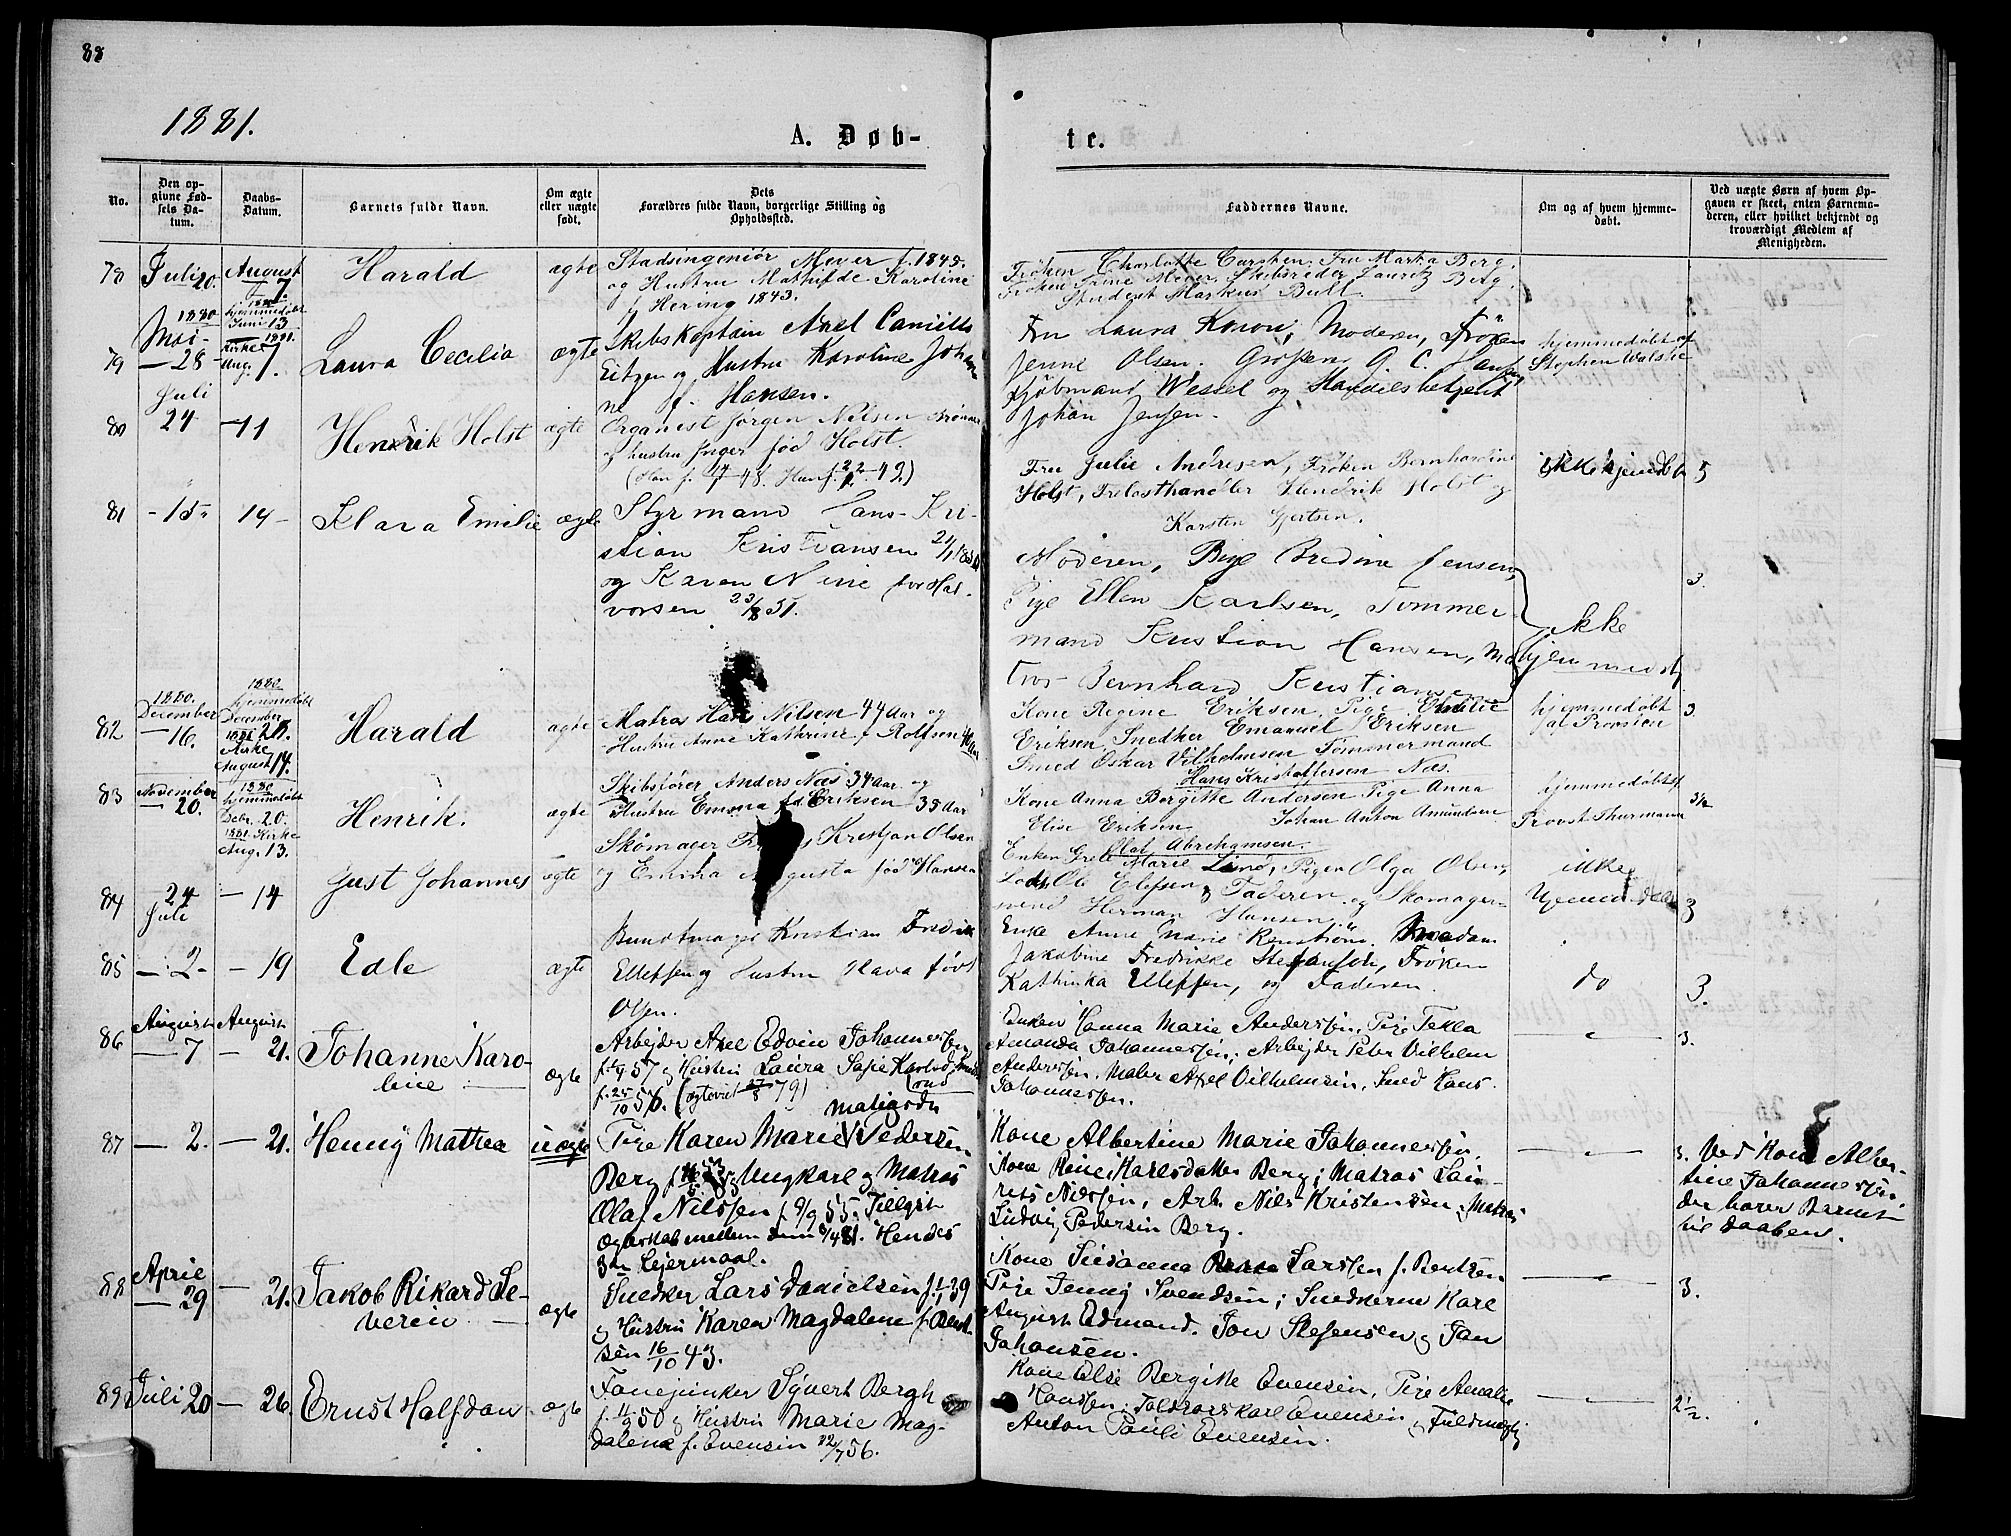 88
1881.
A. Døb-
te.
No.
Den op-
givne Fød-
sels Da-
tum.
Daabs-
Datum.
Barnets fulde Navn.
Om ægte
eller uægte
født.
Dets
Forældres fulde Navn, borgerlige Stilling og
Opholdssted.
Faddernes Navne.
Om og af hvem hjemme-
døbt.
Ved uægte Børn af hvem Op-
gaven er skeet, enten Barnemo-
deren, eller hvilket bekjendt og
troværdigt Medlem af
Menigheden.
78 Juli 20. August 7 Harald ægte
Stadsingeniör Meyer f. 1845.
og Hustru Mathilde Karoline
f. Hering 1843.
Fröken Charlotte Carsten. Fru Martha Berg.
Fröken Trine Meyer, Skibsreder Lauritz Berg.
Student Markus Bull.
79 1880 Mai 28 1880 hjemmedöbt Juni 13 1881. Kirke Aug. 7. Laura Cecilia ægte
Skibskaptain Axel Camillo
Eitzen og Hustru Karoline Johan
ne f. Hansen.
Fru Laura Konow, Moderen, Fröken
Jenne Olsen. Grosserer G. C. Hansen,
Kjöbmand Wessel og Handelsbetjent
Johan Jensen.
hjemmedöbt af
Stephen Walske
80 Juli 24 11 Hendrik Holst ægte
Organist Jörgen Nilsen
og hustru Inger fød Holst.
Fru Julie Andresen, Fröken Bernhardine
Holst, Trelasthandler Hendrik Holst og
Karsten Gjertsen.
ikke hjemdbt 5
81 - 15 14 - Klara Emilie ægte
Styrmand Hans Kri-
stian Kristiansen
og Karen Nine fød Hal-
vorsen 23/8 51.
Moderen, Pige Bredine Jensen,
Pige Ellen Karlsen, Tømmer-
mand Kristian Hansen, Ma
tros Bernhard Kristiansen
Ikke
hjemmedøbt
3.
82 1880. December 16. 1880 hjemmedöbt December 28. 1881 Kirke August 14. Harald ægte
Matros Hans Nilsen 44 Aar og
Hustru Anne Kathrine f. Rolfsen 40 Aar
Kone Regine Eriksen, Pige Emilie
Eriksen, Snedker Emanuel Eriksen
Smed Oskar Vilhelmsen Tömmermand
Hans Kristoffersen Næs.
hjemmedöbt
af Provsten
3.
83 November 20. 1880 hjemmedöbt Debr. 20. 1881. Kirke Aug. 13. Henrik. ægte
Skibsförer Anders Næs 34 Aar og
Hustru Emma fd Eriksen 35 Aar
Kone Anna Borgitte Andersen Pige Anna
Elise Eriksen Johan Anton Amundsen
Olaf Abrahamsen.
hjemmedöbt af
Provst Thurmann
3 1/2
84 24 Juli 14 Just Johannes ægte
Skömager Kristjan Olsen
og Emma Augusta fød Hansen
Enken Grete Marie Lund, Pigen Olga Olsen,
Lods Ole Elefsen, Faderen og Skomager-
svend Herman Hansen
ikke
hjemmedøbt
3
85 2 - 19 Edle ægte
Bundtmager Kristian Fredrik
Ellefsen og Hustru Hava født
Olsen.
Enke Anne Marie Renström. Madam
Jakobine Fredrikke Stefansen, Fröken
Kathinka Ellefsen, og Faderen.
do 3.
86 August 7 August 21. Johanne Karo-
line ægte
Arbejder Axel Edvin Johannessen
f. 1/9 57 og Hustru Laura Sofie
f. 25/10 56. (ægteviet 27/8 79)
Enken Hanna Marie Andersen, Pige Tekla
Amanda Johannessen, Arbejder Peter Vilhelm
Andersen, Maler Axel Vilhelmsen, Smed Hans
Johannessen.
3.
87 2. 21. Henny Mathea uægte
Pige Karen Marie Pedersen
Berg Ungkarl og Matros
Olaf Nilssen f. 9/9 55. Tillyst
Ægteskab mellem dem 9/4 81. Hendes
3de Lejermaal.
Kone Albertine Marie Johannessen.
Kone Karlsdatter Berg; Matros Lau-
rits Nilssen, Arb. Nils Kristensen, Matros
Ludvig Pedersen Berg.
3. Ved Kone Alber-
tine Johannessen
der bærer Barnet
til daaben.
88 April 29 21. Jakob Rikard Se-
verin ægte
Snedker Lars Danielsen f. 1/1 39
og Hustru Karen Magdalene f. Bent-
sen 16/10 43.
Kone Susanna Larssen f. Bentsen
Pige Jenny Svendsen; Snedkerne Karl
August Edmand. Jon Stefensen og Jan
Johansen.
3.
89 Juli 20 26. Ernst Halfdan ægte
Fanejunker Syvert Bergh
f. 11/9 50 og Hustru Marie Mag-
dalena f. Evensen 22/7 56.
Kone Else Bergitte Evensen, Pige Amalie
Hanssen; Toldoppskarl Evensen, Fuldmægtig
Anton Pauli Evensen.
2 1/2.